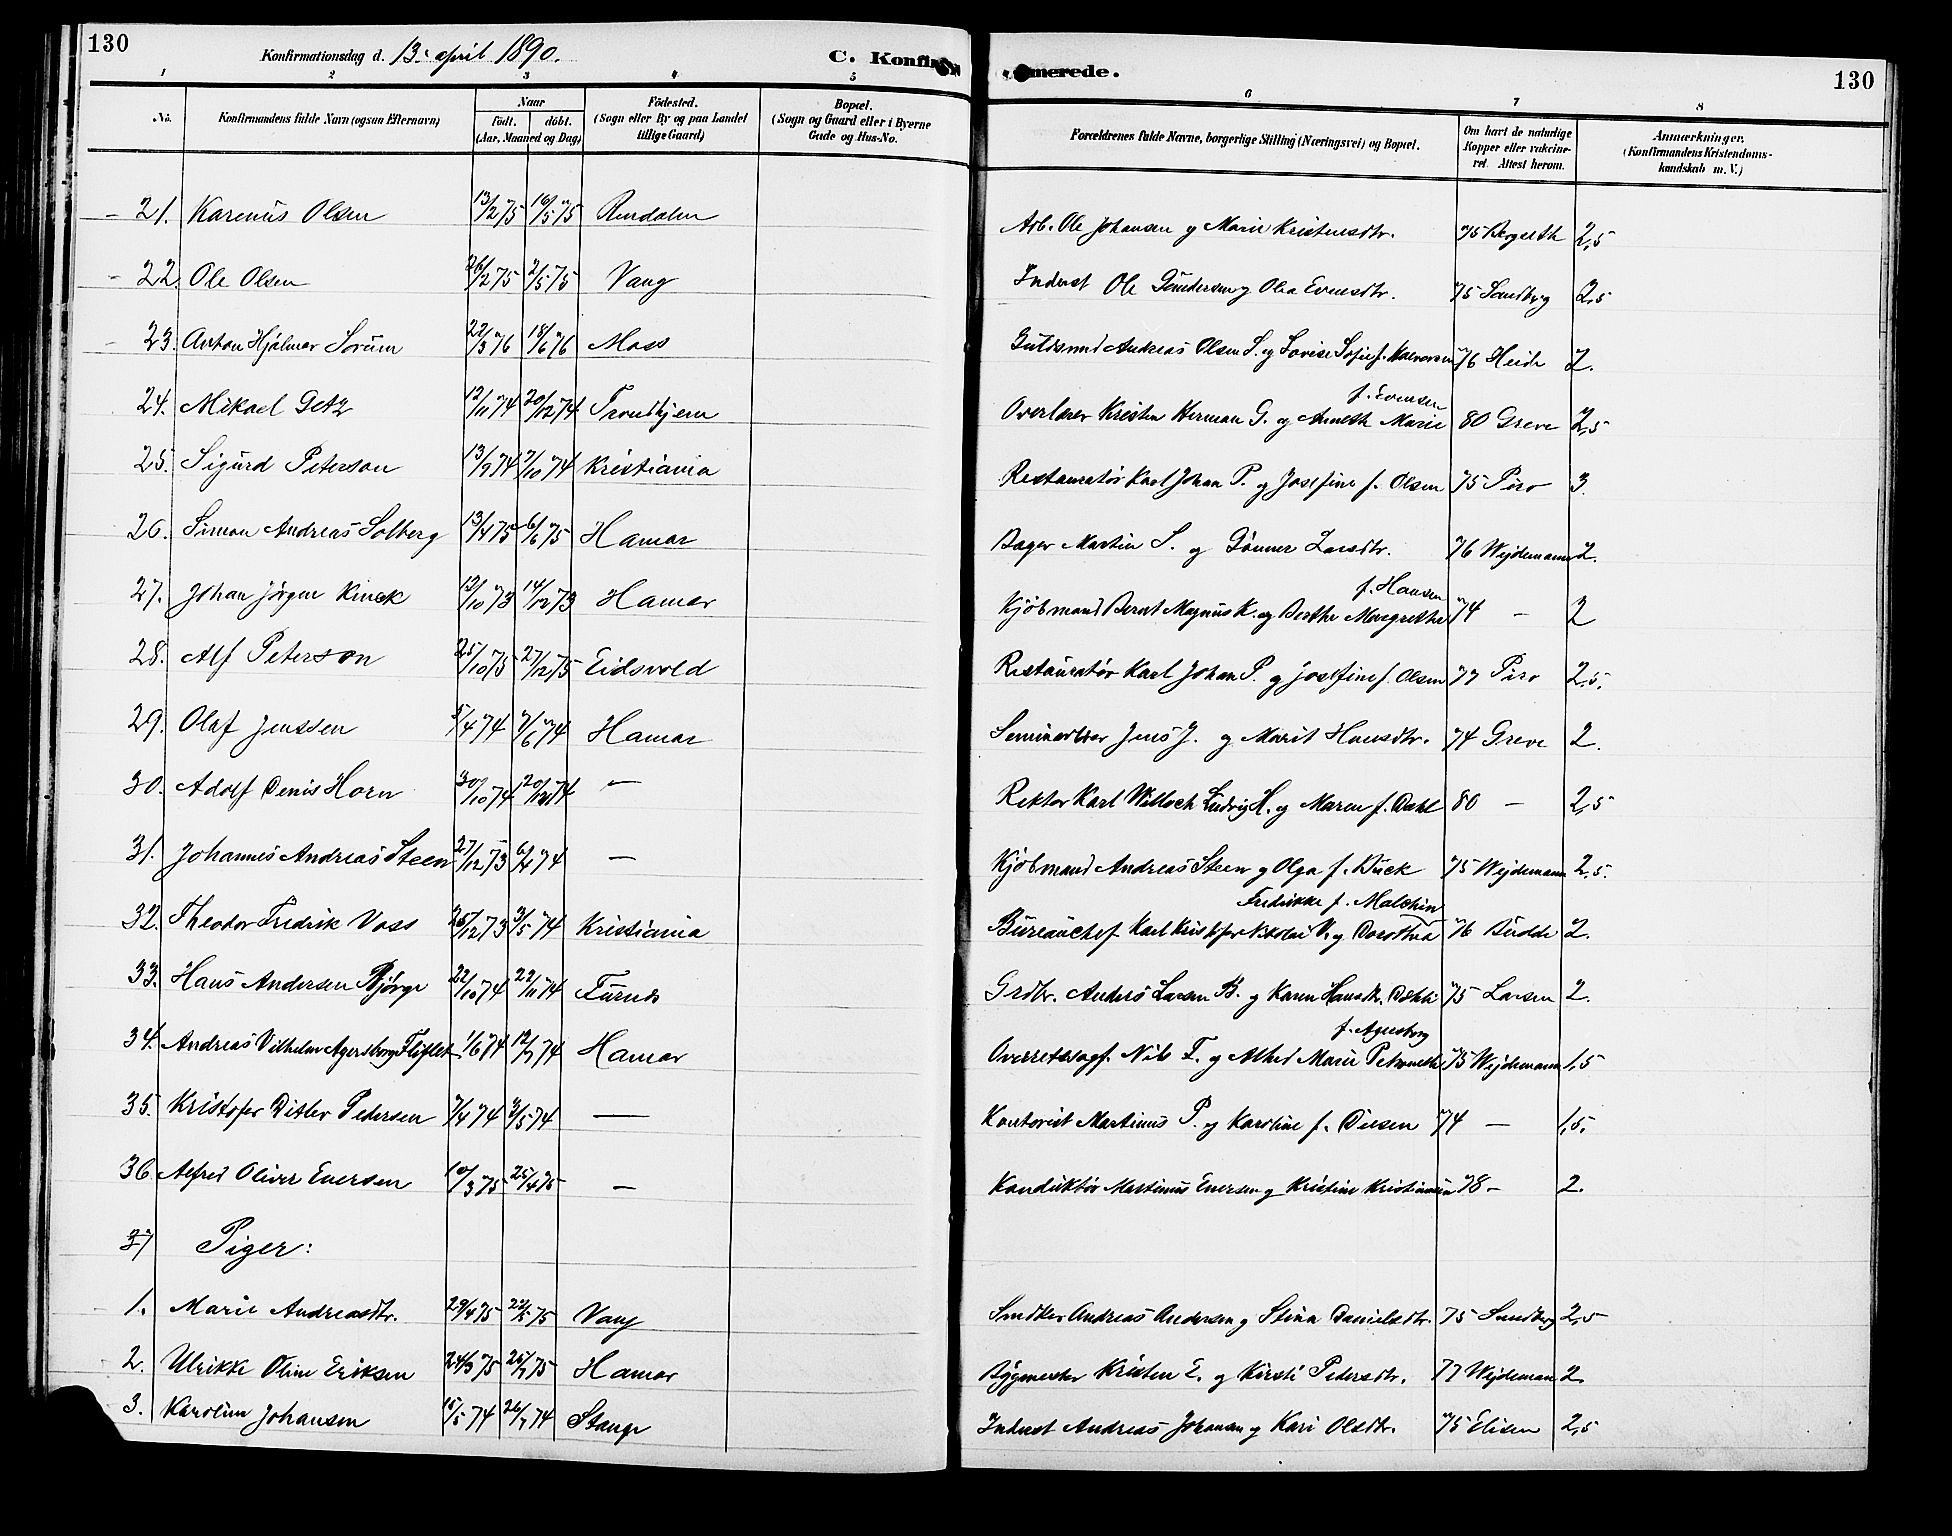 130
Konfirmationsdag d. 13. april 1890.
C. Konfirmerede.
130
1 2 3 4 5 6 7 8
No.
Konfirmandens fulde Navn (ogsaa Efternavn)
Naar
födt. döbt.
(Aar, Maaned og Dag)
Födested.
(Sogn eller By og paa Landet
tillige Gaard)
Bopæl.
(Sogn og Gaard eller i Byerne
Gade og Hus-No.
Forældrenes fulde Navne, borgerlige Stilling (Næringsvei) og Bopæl.
Om havt de naturlige
Kopper eller vakcine-
ret. Attest herom.
Anmærkninger,
(Konfirmandens Kristendoms-
kundskab m. V.)
21. Karenus Olsen 13/2 75 16/5 75 Rendalen Arb. Ole Johansen g Marie Kristensdtr. 75 2,5
22. Ole Olsen 26/2 75 2/5 75 Vang Inderst Ole Gundersen g Olea Evensdtr. 75 Sandberg 2,5
23. Anton Hjalmar Sörum 22/3 76 18/6 76 Moss Andreas Olsen S. og Lovise Sofie f. Halvorsen 76 Heide 2.
24. Mikael Getz 12/11 74 20/12 74 Trondhjem Overlærer Kristen Herman G. og Anneth Marie f. Evensen 80 Greve 2,5
25. Sigurd Peterson 13/9 74 7/10 74 Kristiania Restauratör Karl Johan P. og Josefine f. Olsen 75 Piro 3.
26. Simon Andreas Solberg 13/4 75 6/6 75 Hamar Bager Martin S. og Gönner Larsdtr. 76 Wejdemann 2.
27. Johan Jörgen Kinck 12/10 73 14/12 73 Hamar Kjöbmand Bernt Magnus K. og Berthe Margrethe f. Hansen 74 — 2
28. Alf Peterson 25/10 75 27/12 75 Eidsvold Restauratör Karl Johan P. og Josefine f. Olsen 77 Piro 2,5.
29. Olaf Jenssen 5/4 74 7/6 74 Hamar Seminarlærer Jens J. og Marit Hansdtr. 74 Greve 2.
30. Adolf Denis Horn 30/10 74 20/12 74 — Rektor Karl Willoch Ludvig H. og Maren f. Dahl 80 — 2,5
31. Johannes Andreas Steen 27/12 73 6/4 74 — Kjöbmand Andreas Steen g Olga f. Dück 75 Wejdemann 2,5.
32. Theodor Fredrik Voss 26/12 73 3/5 74 Kristiania Büreauchef Karl Kristofer Nikolai V. og Dorothea Fredrikke f. Malchin 76 Budde 2.
33. Hans Andersen Bjørge 22/10 74 22/11 74 Furnes Grdbr. Anders Larsen B. og Karen Hansdtr. 75 Larsen 2.
34. Andreas Vilhelm Agersborg Fliflet 1/6 74 12/7 74 Hamar Overretssagf. Nils F. og Althed Marie Petronelle f. Agersborg 75 Wejdemann 1,5
35. Kristofer Ditlev Pedersen 7/4 74 3/5 74 — Kontorist Martinus P. og Karoline f. Diesen 74 — 1,5.
36 Alfred Oliver Evensen 10/3 75 25/4 75 — Konduktör Martinus Evensen g Kristine Kristiansen 78 — 2.
37 Piger:
1. Marie Andreasdtr. 29/4 75 22/5 75 Vang Andreas Andersen g Stina Danielsdtr. 75 Sandberg 2,5
2. Ulrikke Oline Eriksen 24/3 75 25/7 75 Hamar Bygmester Kristen E. og Kirsti Pedersdtr. 77 Wejdeman 2.
3. Karoline Johansen 15/5 74 26/7 74 Stange Inderst Andreas Johansen g Kari Olsdtr. 75 Elisen 2,5